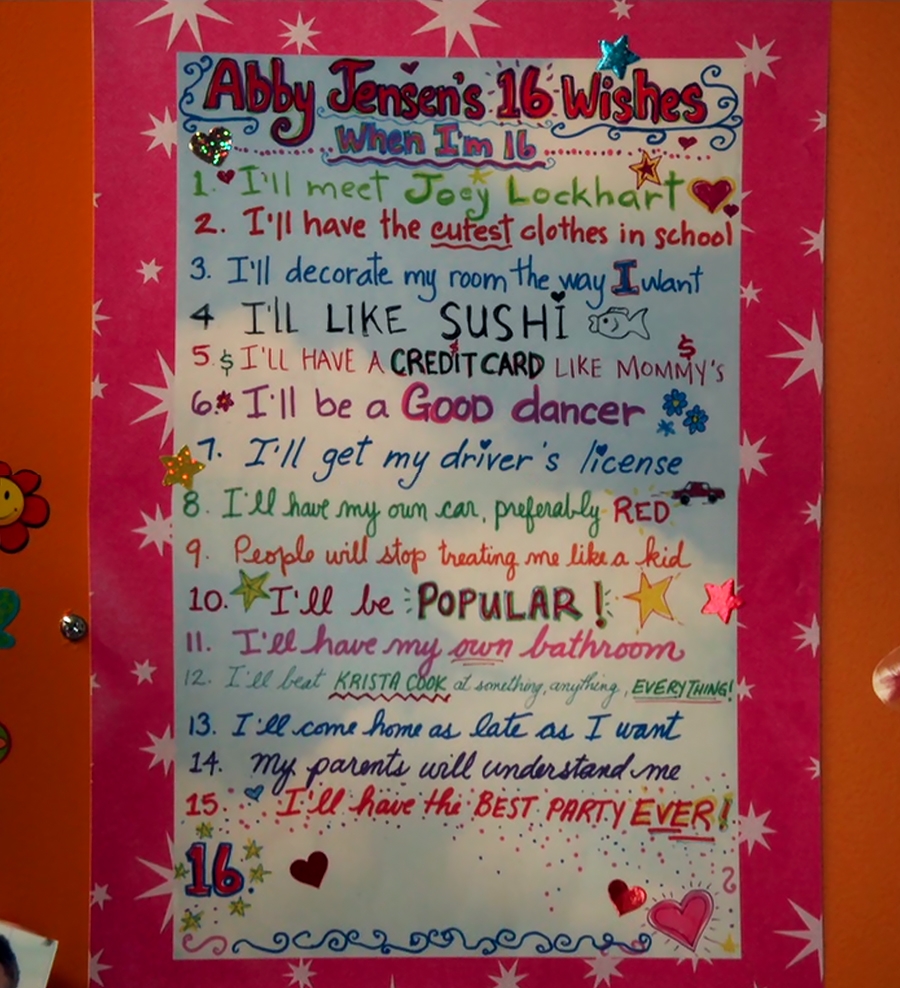 Abby Jensen's 16 Wishes
When I'm 16
1. I'll meet Joey Lockhart
2. I'll have the cutest clothes in school
3. I'll decorate my room the way I want
4 I'll LIKE SUSHi
5. $ I'LL HAVE A CREDIT CARD LIKE MOMMY'S $
6. I'll be a GOOD dancer
7. I'll get my driver's license
8. I'll have my own car, preferably RED
9. People will stop treating me like a kid
10. I'll be POPULAR!
11. I'll have my own bathroom
12. I'll beat KRISTA COOK at something, anything, EVERYTHING!
13. I'll come home as late as I want
14. My parents will understand me
15. I'll have the BEST PARTY EVER!
16